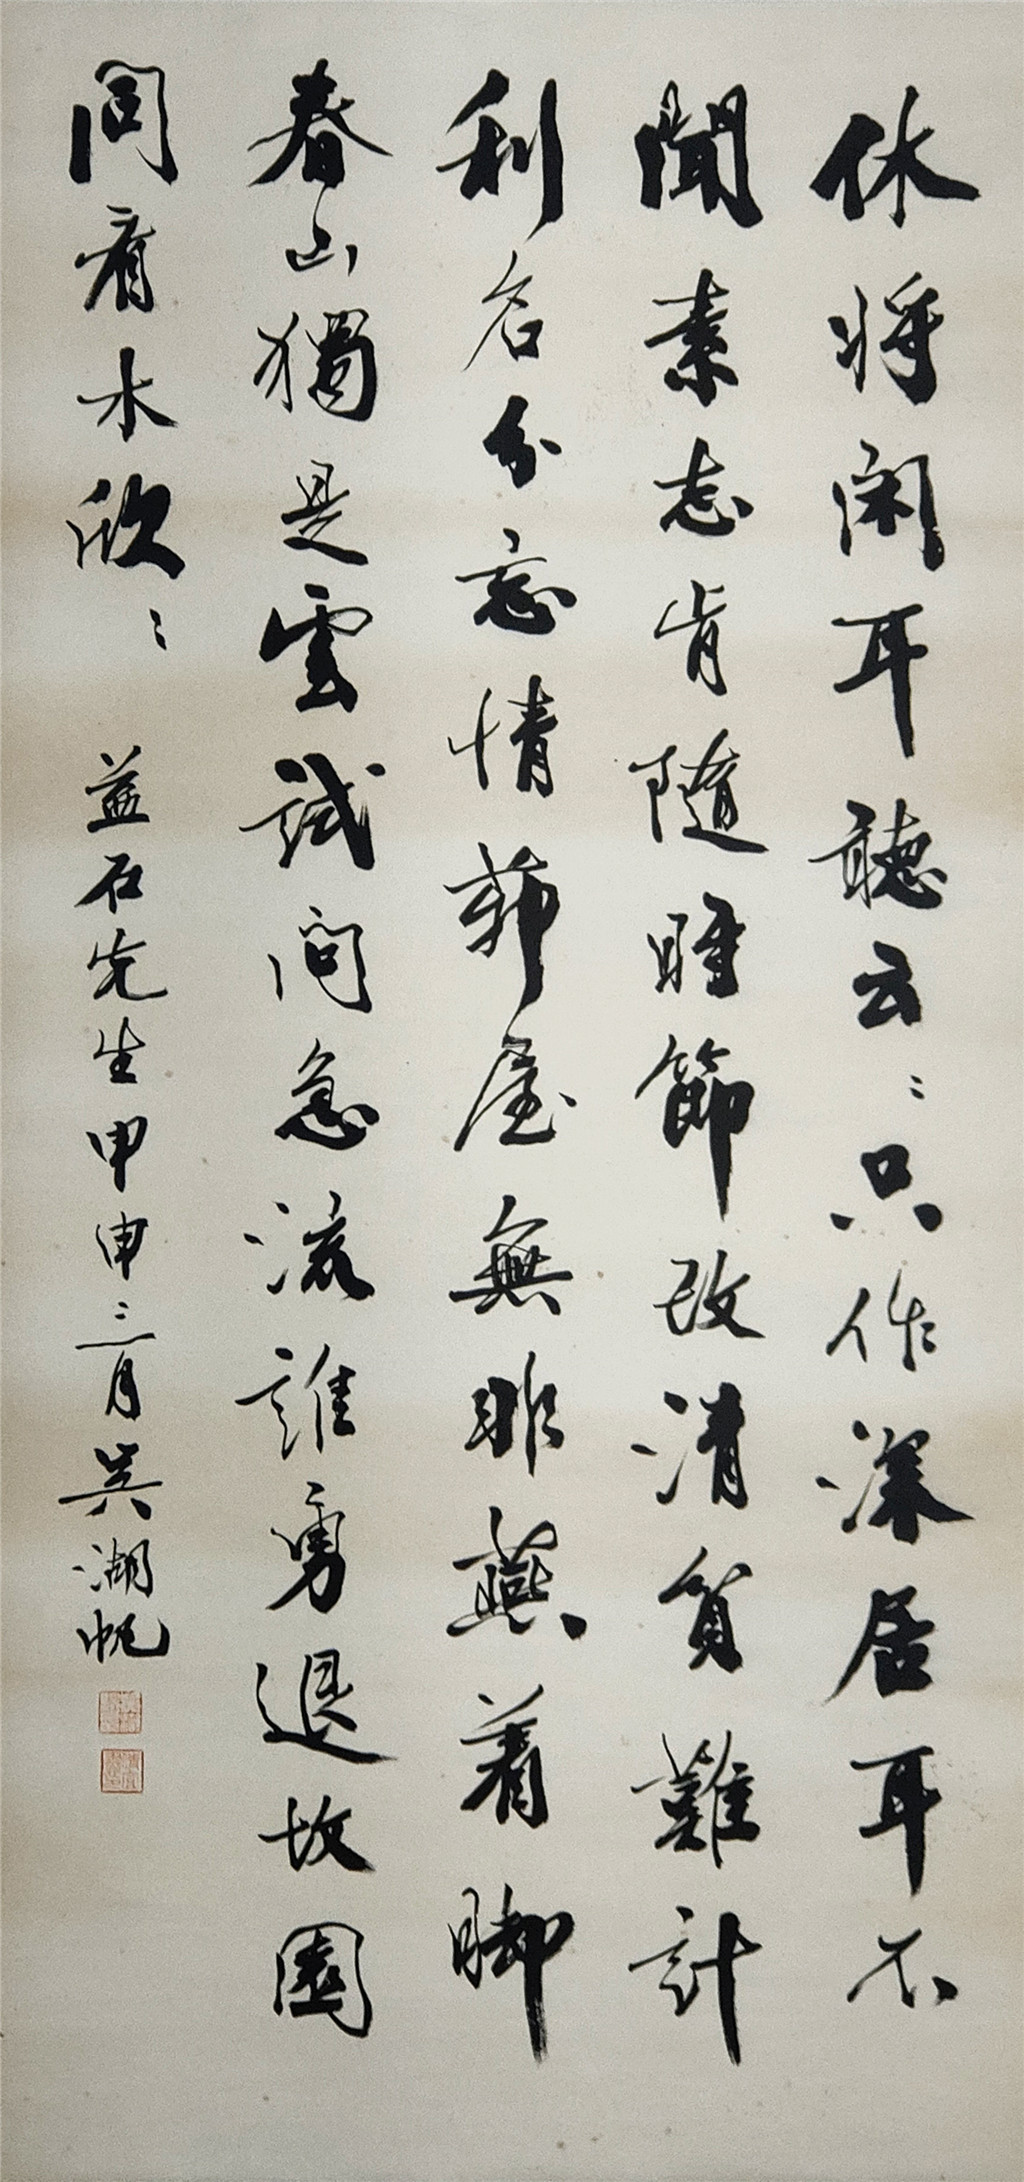 休将闲耳聽云〻只作深居耳不
聞素志肯随時節改清貧難計
利名分忘情茆屋無非燕着脚
春山獨是雲試問急流誰勇退故園
同看木欣〻
益石先生甲申三月吴湖帆